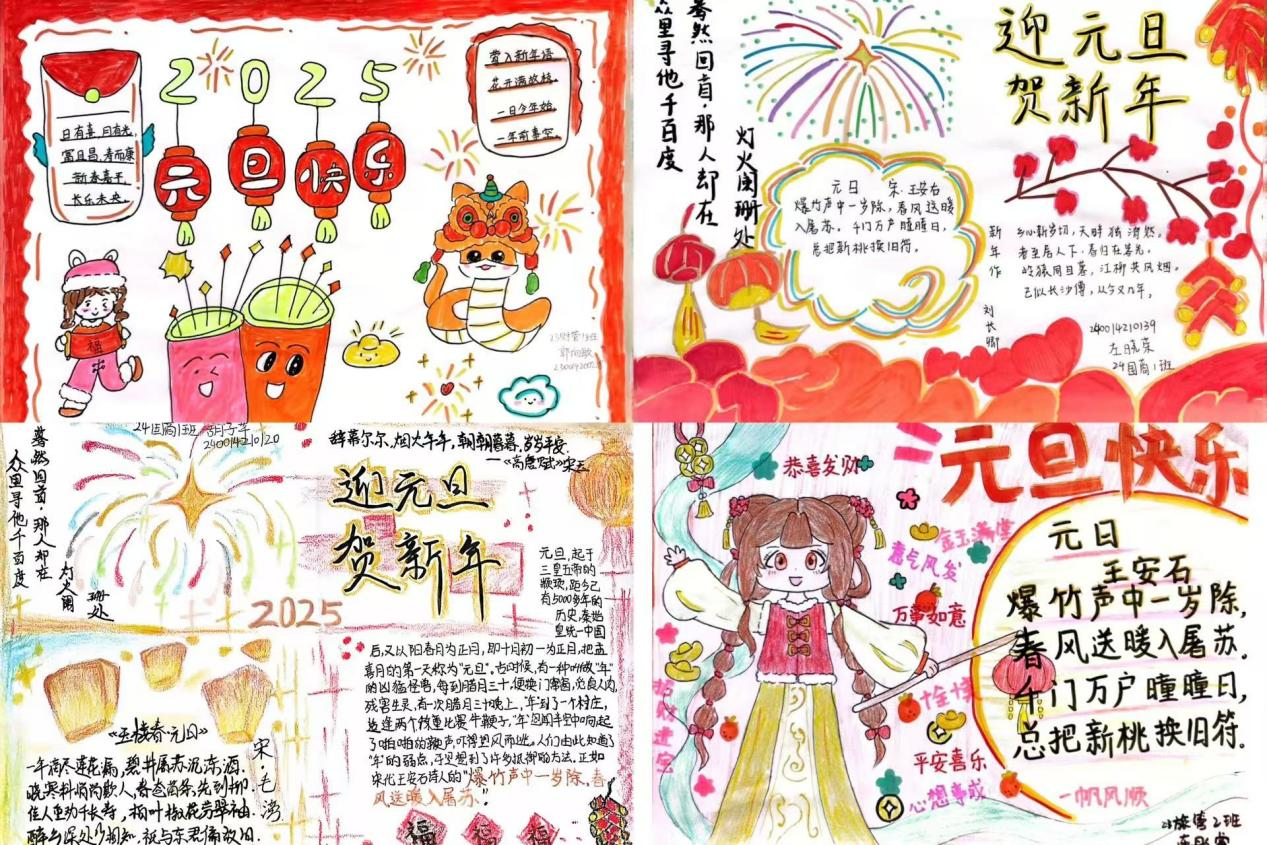 2025
元旦快乐
日有喜,月有光,
富且昌,寿而康
新春嘉平,
长乐未央.
花开满故枝.
一日今年始,
一年前事空.
福
23财管1班
蓦然回首,那人却在
众里寻他千百度
灯火阑珊处
迎元旦
贺新年
元日 宋.王安石
爆竹声中一岁除,春风送暖
入屠苏.千门万户曈曈日,
总把新桃换旧符.
新年作
乡心新岁切,天畔独潸然.
老至居人下,春归在客先.
岭猿同旦暮,江柳共风烟.
已似长沙傅,从今又几年.
刘长卿
240014210139
左晓荣
24国商1班
24国商1班 胡子年
240014210120
蓦然回首,那人却在
众里寻他千百度
灯火阑
珊处
辞暮尔尔,烟火年年,朝朝暮暮,岁岁平安
—《高唐赋》宋玉
迎元旦
贺新年
2025
元旦,起于
三皇五帝的
颛顼,距今已
有5000多年的
历史,秦始
皇统一中国
后,又以阳春月为正月,即十月初一为正月,把孟
喜月的第一天称为"元旦".古时候,有一种叫做"年"
的凶猛怪兽,每到腊月三十,便挨门串窗,觅食人肉,
残害生灵,有一次腊月三十晚上,"年"到了一个村庄,
"年"的弱点,
宋代王安石诗人的"爆竹声中一岁除,春
风送暖入屠苏."
《玉楼春·元日》
宋·毛滂
一年滴尽莲花漏,碧井屠苏沉冻酒.
晓寒料峭尚欺人,春态苗条先到柳.
佳人重劝千长寿,柏叶椒花芬翠袖.
醉乡深处少相知,祇与东君偏故旧.
福
福
福
元旦快乐
恭喜发财
金玉满堂
意气风发
万事如意
招财进宝
平安喜乐
心想事成
一帆风顺
元日
王安石
爆竹声中一岁除,
春风送暖入屠苏.
千门万户曈曈日,
总把新桃换旧符.